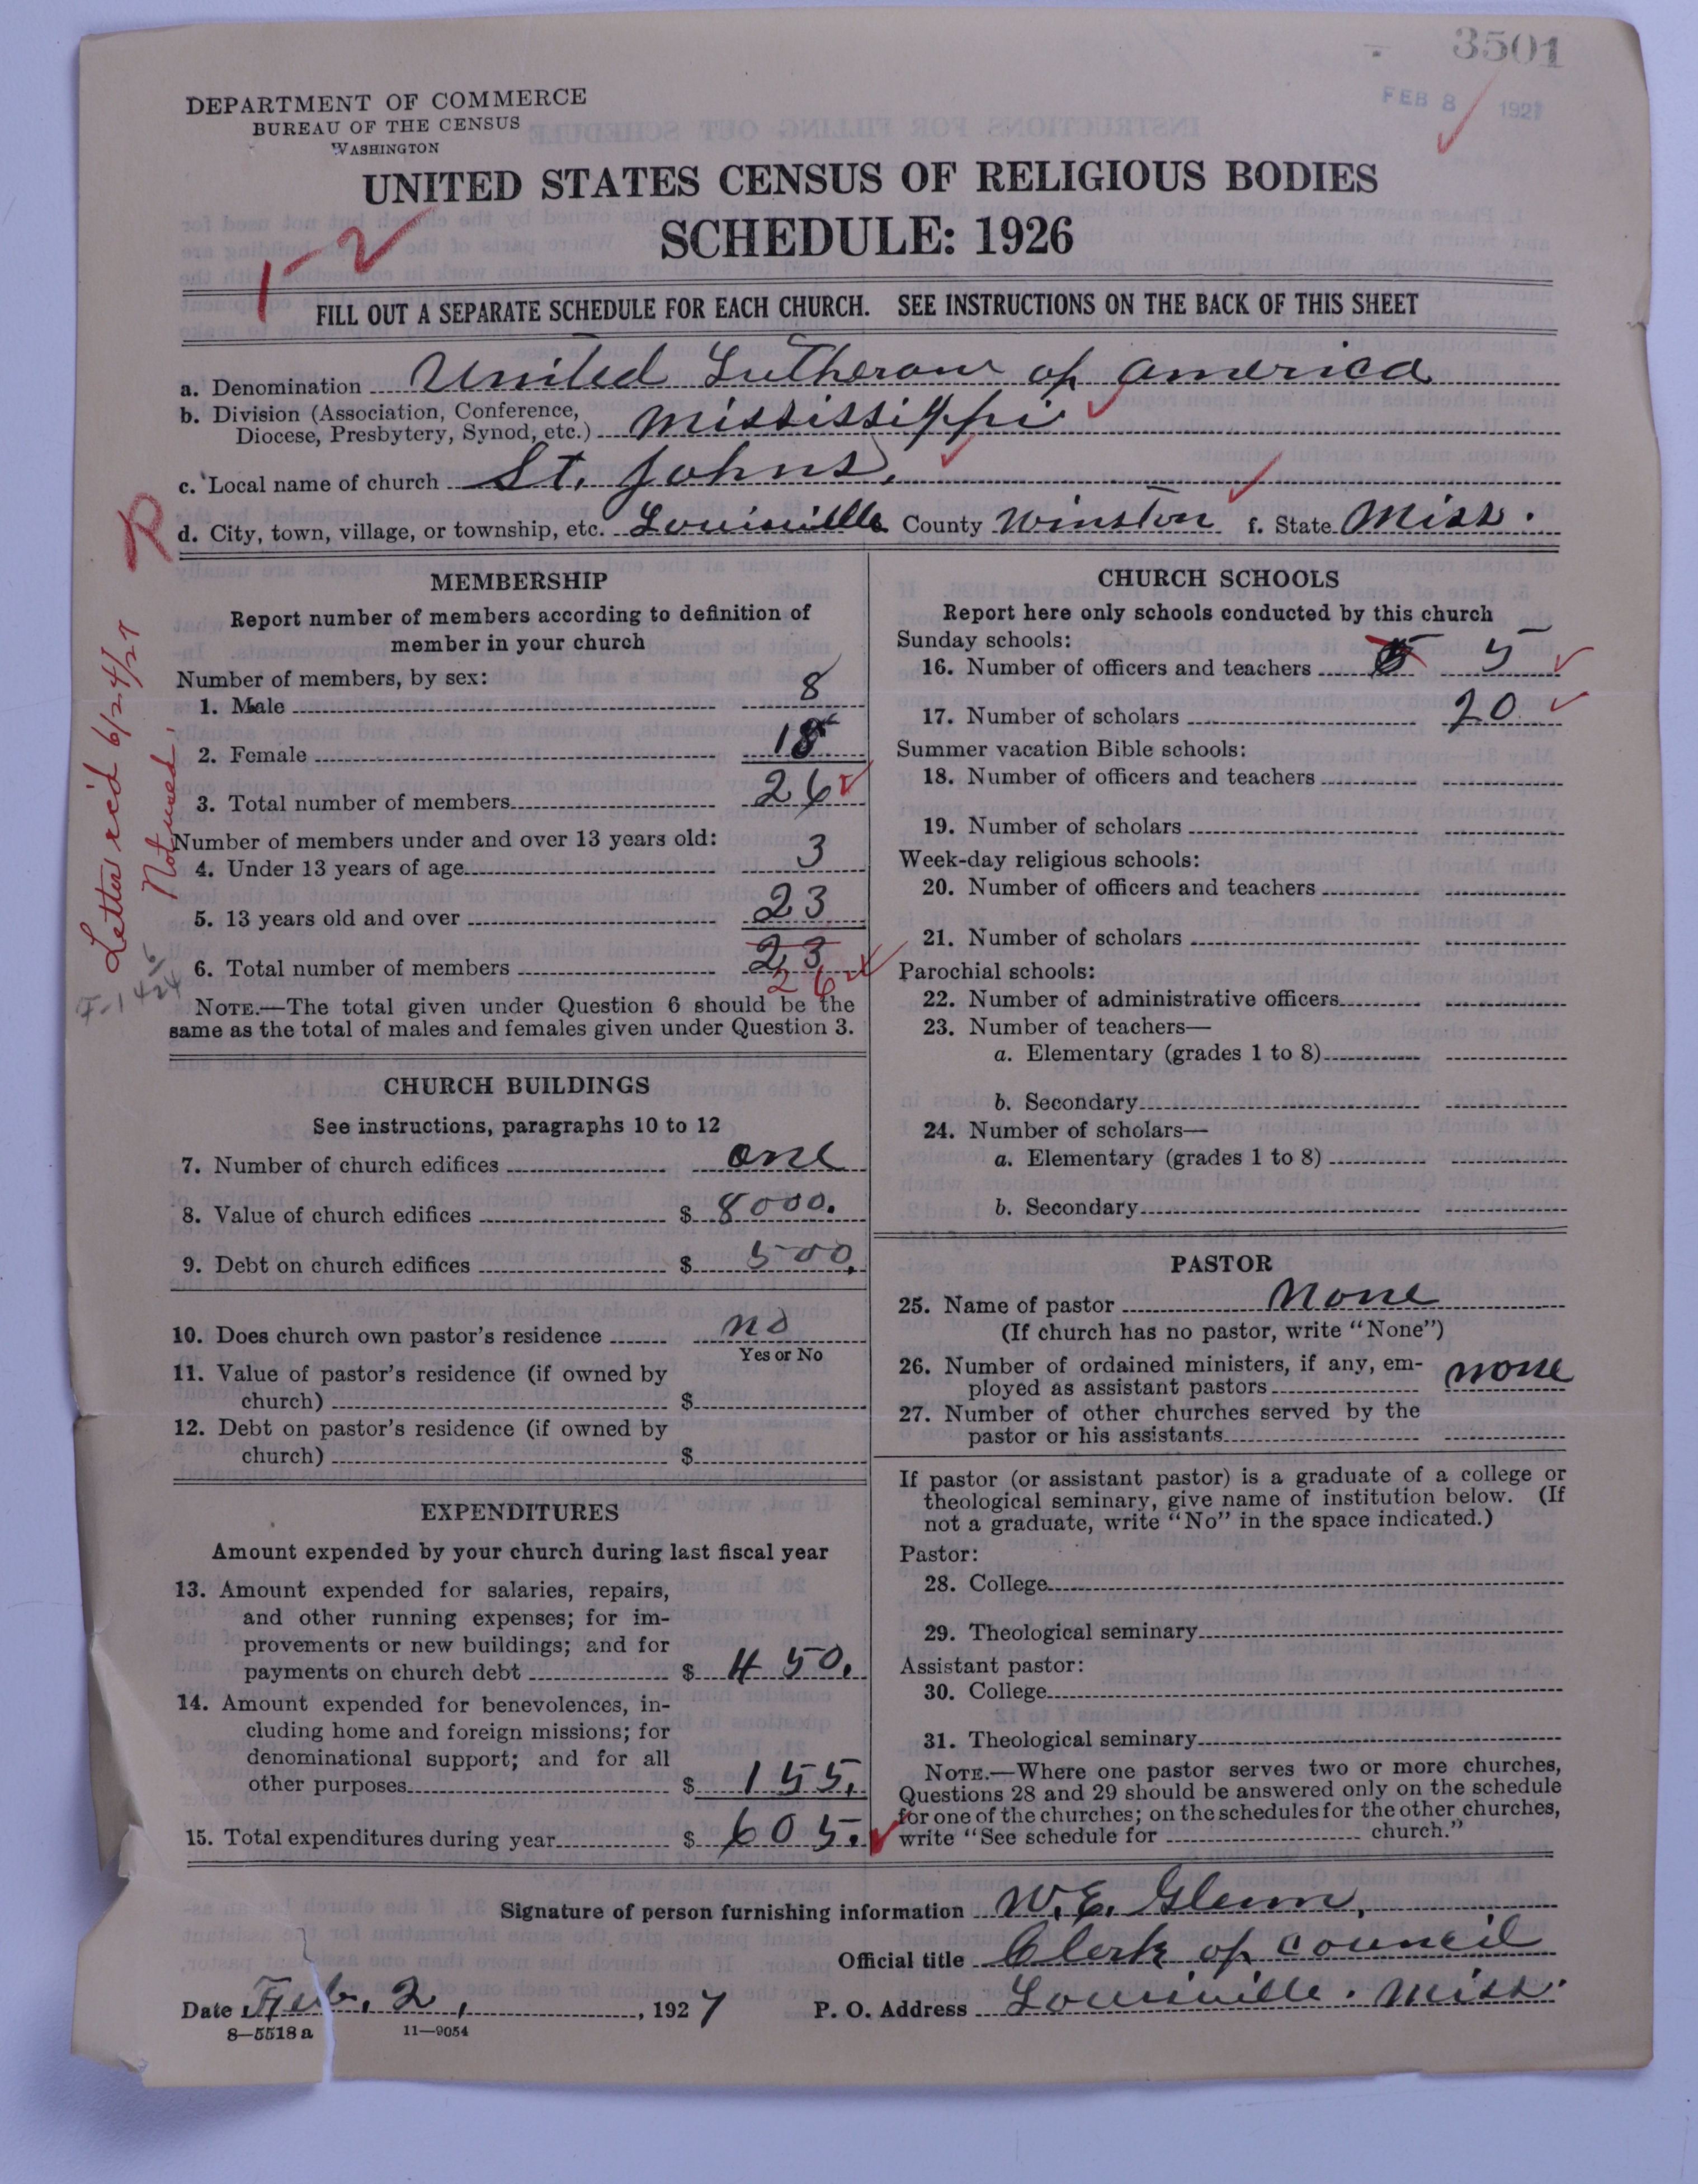 3501
FEB 8 1927
DEPARTMENT OF COMMERCE
BUREAU OF THE CENSUS
WASHINGTON
UNITED STATES CENSUS OF RELIGIOUS BODIES
SCHEDULE: 1926
1-2
FILL OUT A SEPARATE SCHEDULE FOR EACH CHURCH. SEE INSTRUCTIONS ON THE BACK OF THIS SHEET
a. Denomination United Lutheran of America
b. Division (Association, Conference,
Diocese, Presbytery, Synod, etc.) Mississippi
c. Local name of church St. Johns.
d. City, town, village, or township, etc. Louisville County Winston f. State Miss.
R
Letter rec'd 6/24/27
Not used.
MEMBERSHIP
Report number of members according to definition of
member in your church
Number of members, by sex:
1. Male 8
2. Female 18
3. Total number of members 26
Number of members under and over 13 years old:
4. Under 13 years of age 3
5. 13 years old and over 23
6. Total number of members 23
26
NOTE.—The total given under Question 6 should be the
same as the total of males and females given under Question 3.
CHURCH BUILDINGS
See instructions, paragraphs 10 to 12
7. Number of church edifices one
8. Value of church edifices $ 8000.
9. Debt on church edifices $ 500.
10. Does church own pastor's residence no
Yes or No
11. Value of pastor's residence (if owned by
church) $
12. Debt on pastor's residence (if owned by
church) $
EXPENDITURES
Amount expended by your church during last fiscal year
13. Amount expended for salaries, repairs,
and other running expenses; for im-
provements or new buildings; and for
payments on church debt $ 450.
14. Amount expended for benevolences, in-
cluding home and foreign missions; for
denominational support; and for all
other purposes $ 155.
15. Total expenditures during year $ 605.
CHURCH SCHOOLS
Report here only schools conducted by this church
Sunday schools:
16. Number of officers and teachers 5
17. Number of scholars 20
Summer vacation Bible schools:
18. Number of officers and teachers
19. Number of scholars
Week-day religious schools:
20. Number of officers and teachers
21. Number of scholars
Parochial schools:
22. Number of administrative officers
23. Number of teachers—
a. Elementary (grades 1 to 8)
b. Secondary
24. Number of scholars—
a. Elementary (grades 1 to 8)
b. Secondary
PASTOR
25. Name of pastor None
(If church has no pastor, write "None")
26. Number of ordained ministers, if any, em-
ployed as assistant pastors none
27. Number of other churches served by the
pastor or his assistants
If pastor (or assistant pastor) is a graduate of a college or
theological seminary, give name of institution below. (If
not a graduate, write "No" in the space indicated.)
Pastor:
28. College
29. Theological seminary
Assistant pastor:
30. College
31. Theological seminary
NOTE.—Where one pastor serves two or more churches,
Questions 28 and 29 should be answered only on the schedule
for one of the churches; on the schedules for the other churches,
write "See schedule for church."
Signature of person furnishing information W. E. Glenn,
Official title Clerk of council
Date Feb. 2, , 1927 P. O. Address Louisville. Miss.
8—5518 a 11—9054